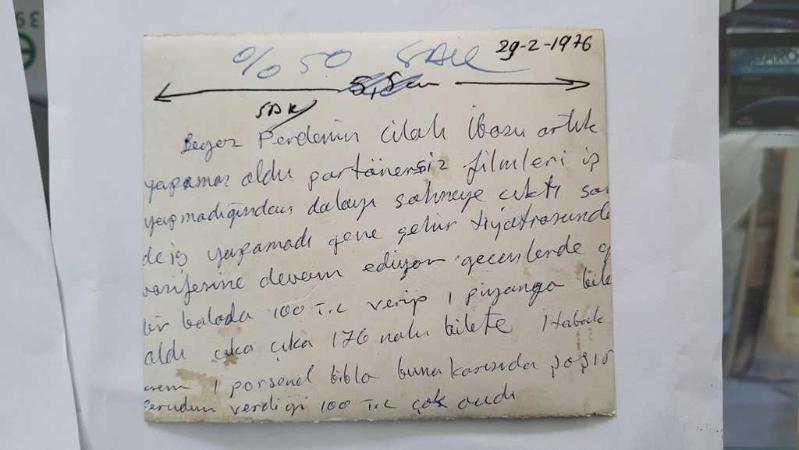 % 50
29-2-1976
5,5 cm
Beyaz Perdenin cilalı İbosu artık
yapamaz oldu partönersiz filmleri iş
yapmadığından dolayı sahneye çıktı
de iş yapamadı gene şehir tiyatrosunda
vazifesine devam ediyor geçenlerde
bir baloda 100 T.L verip 1 piyango bile
aldı çıka çıka 176 nolu bilete 1 tabak
1 porselen bibla buna karşında şaşır
verdiği 100 T.L çok acıdı